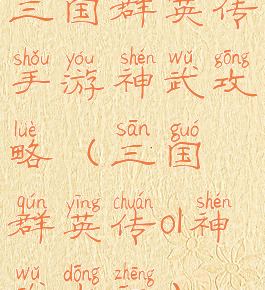 三国群英传
shǒu yóu shén wǔ gōng
手游神武攻
lüè sān guó
略(三国
qún yīng chuán shén
群英传ol神
wǔ dōng zhēng